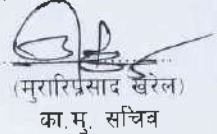 (मुरारिप्रसाद खरेल)
का.मु. सचिव